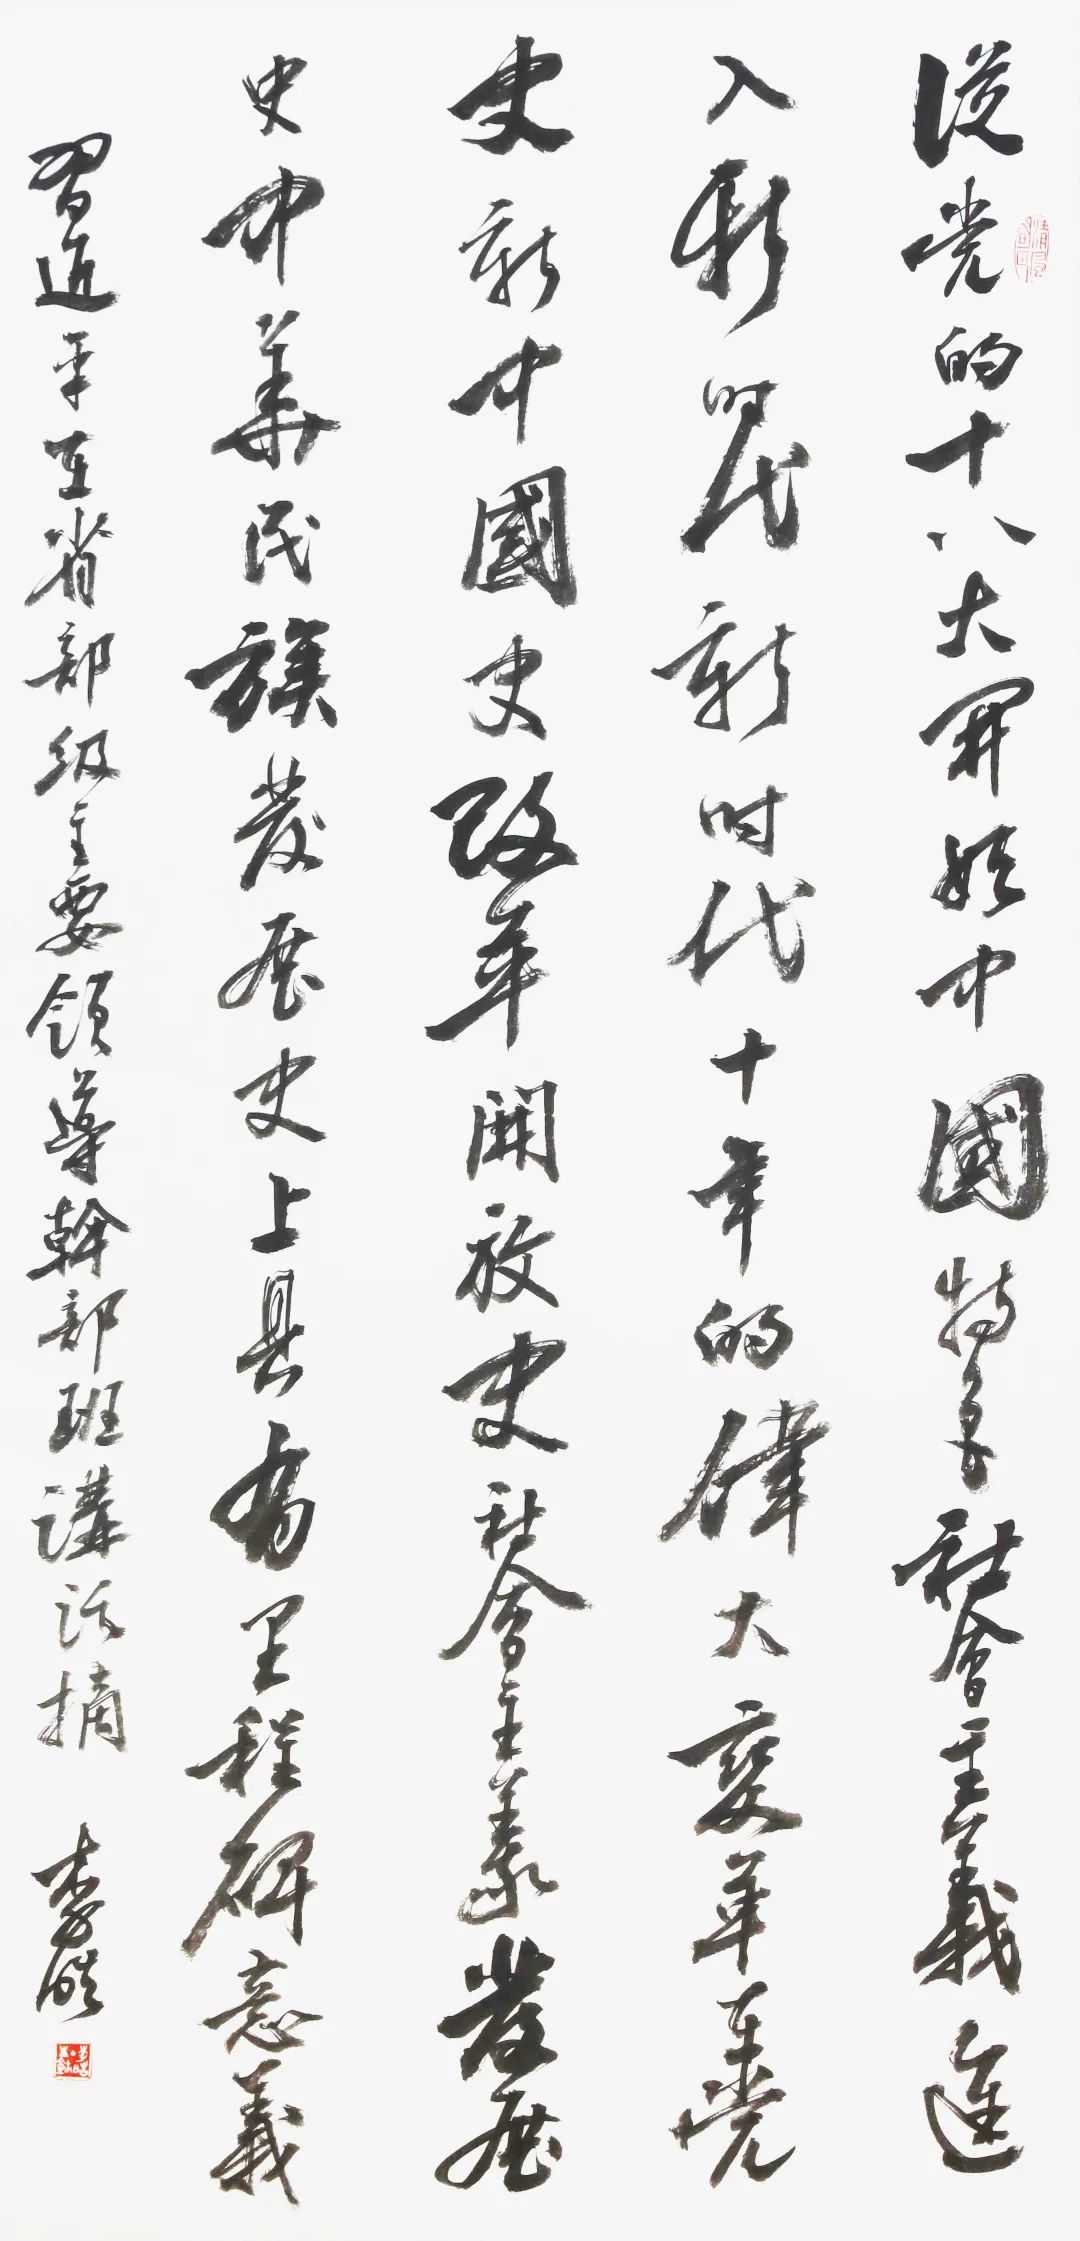 從党的十八大開始中國特色社會主義進
入新时代新时代十年的偉大變革在党
史新中國史改革開放史社會主義發展
史中華民族發展史上具有里程碑意義
習近平在省部級主要領導幹部班講話摘 李皓